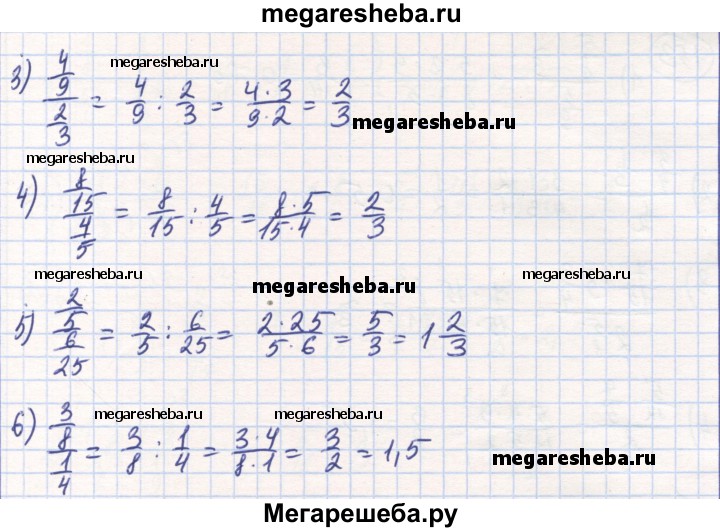 megaresheba.ru
megaresheba.ru
3) 4/9 / 2/3 = 4/9 : 2/3 = 4·3/9·2 = 2/3
megaresheba.ru
megaresheba.ru
4) 8/15 / 4/5 = 8/15 : 4/5 = 8·5/15·4 = 2/3
megaresheba.ru megaresheba.ru megaresheba.ru
5) 2/5 / 6/25 = 2/5 : 6/25 = 2·25/5·6 = 5/3 = 1 2/3
megaresheba.ru megaresheba.ru
6) 3/8 / 1/4 = 3/8 : 1/4 = 3·4/8·1 = 3/2 = 1,5
megaresheba.ru
Мегарешеба.ру